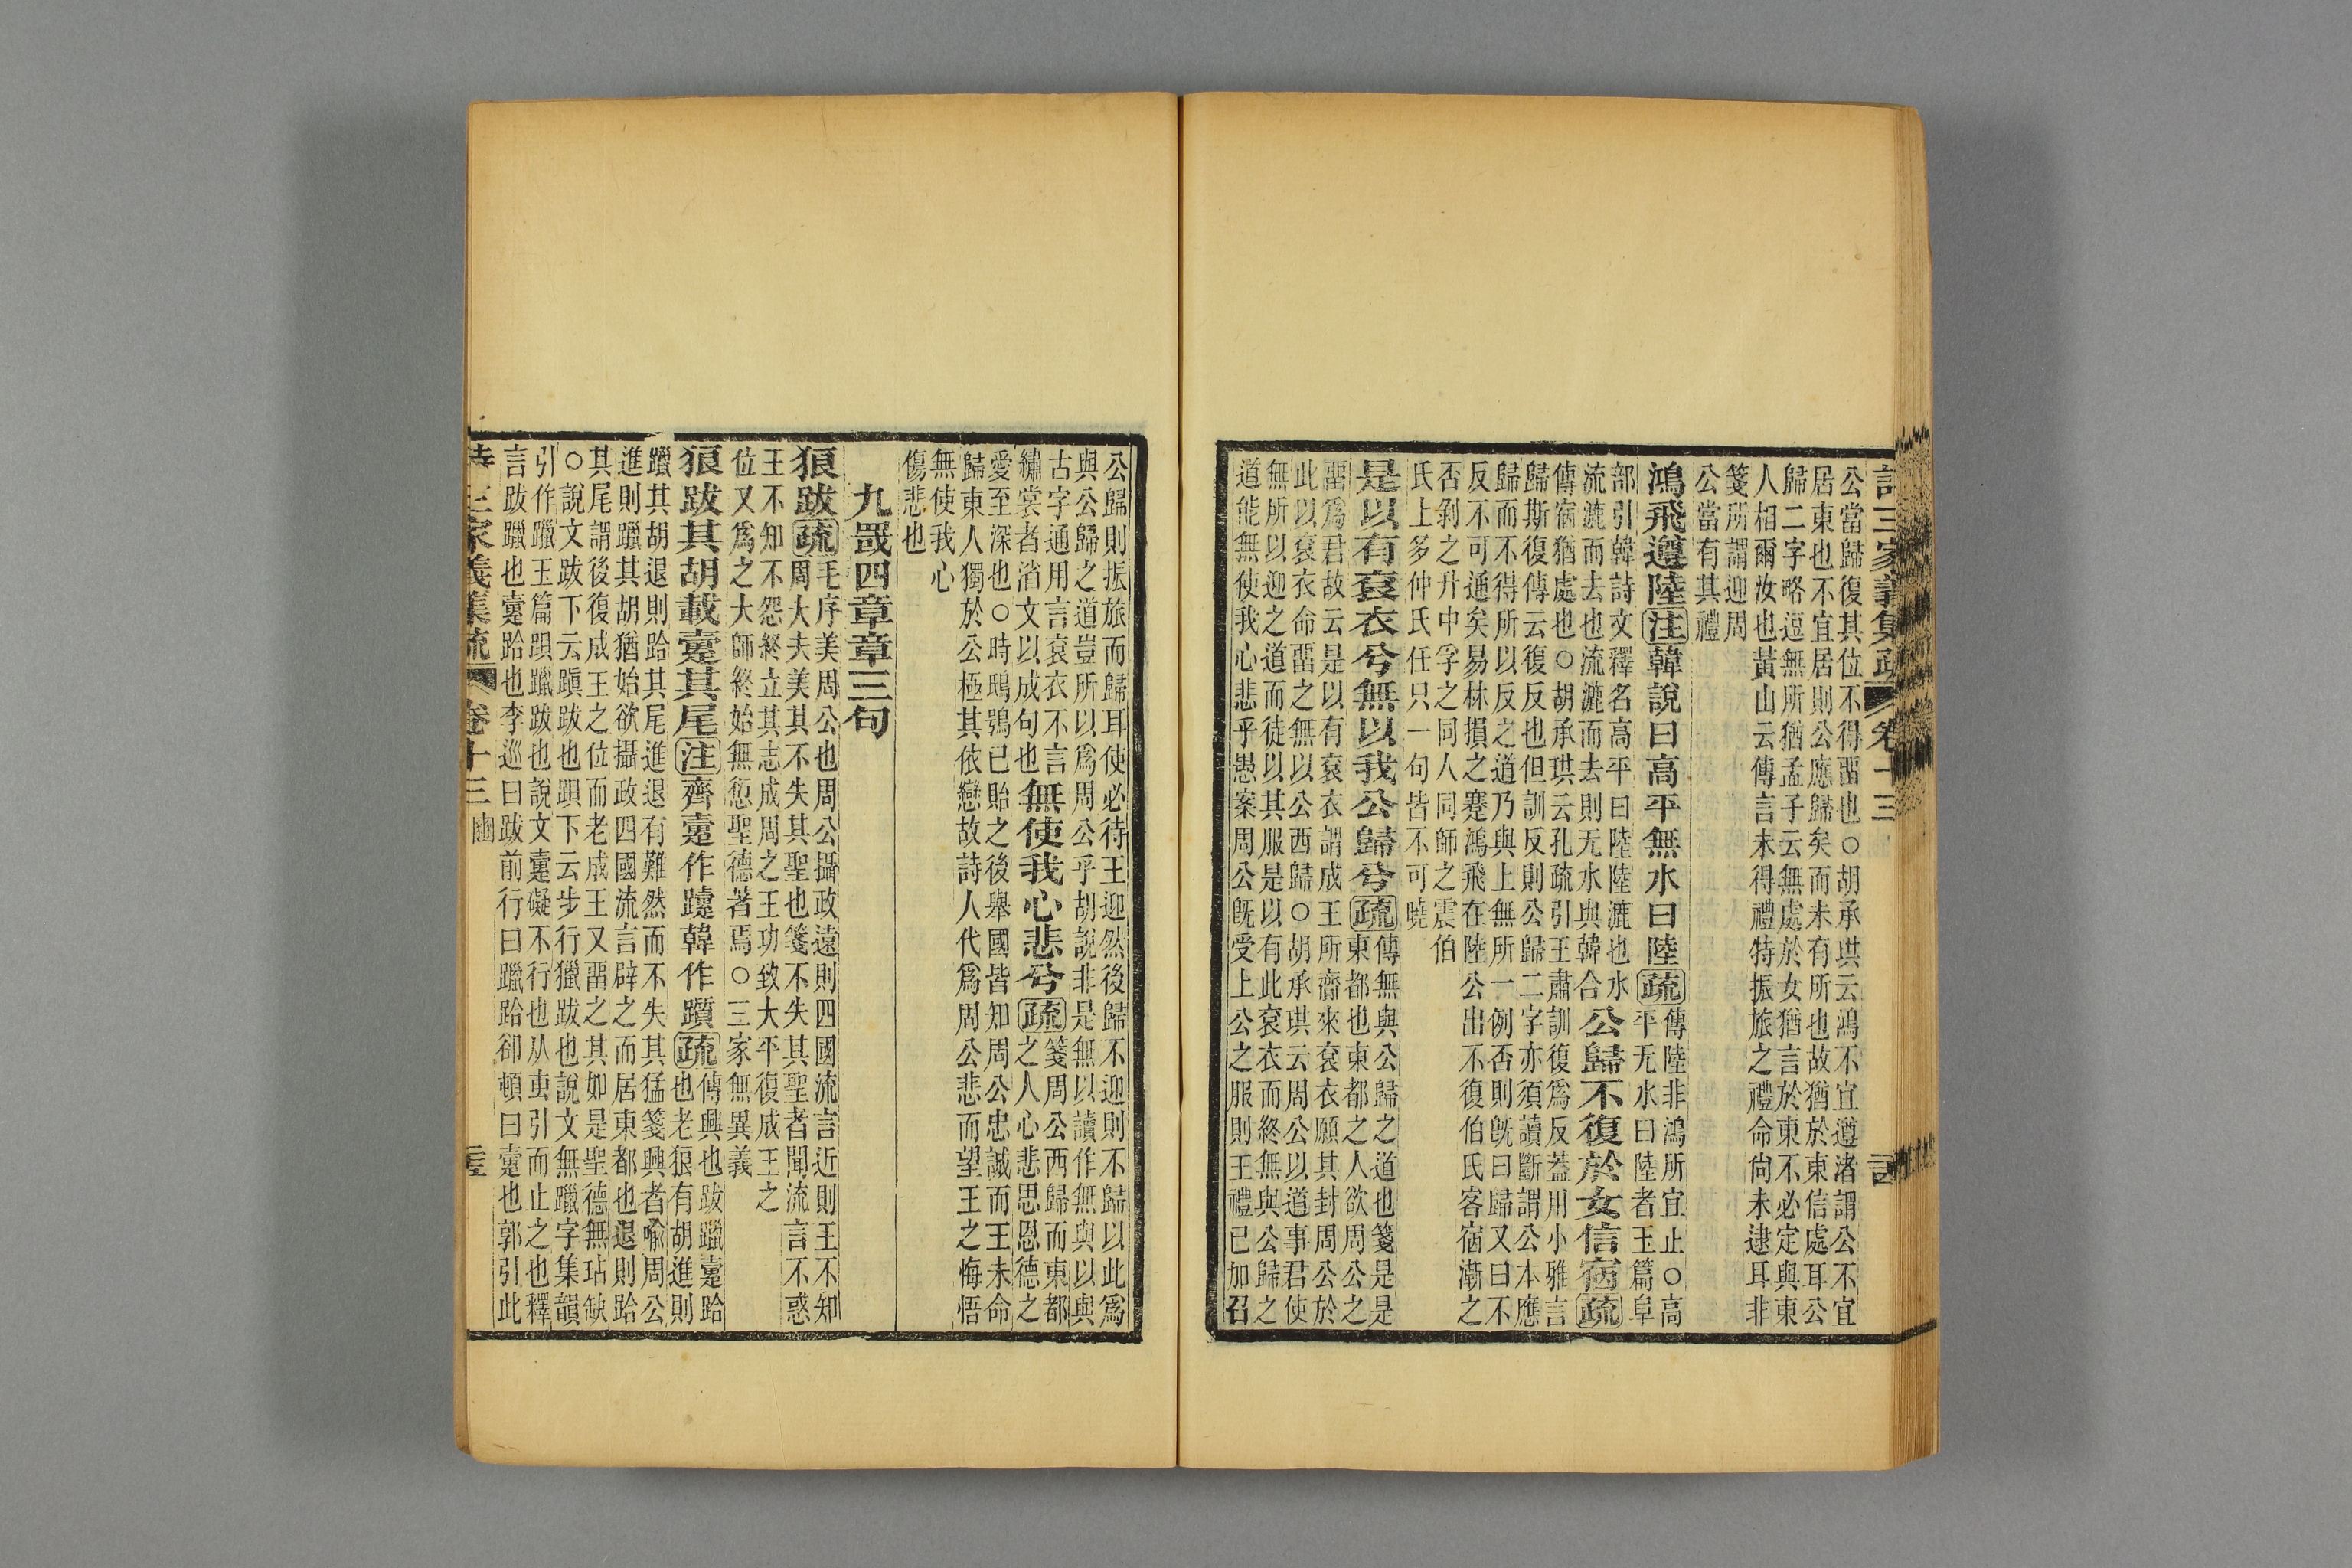 詩三家義集疏 卷十三
公當歸復其位不得畱也○胡承珙云鴻不宜遵渚謂公不宜
居東也不宜居則公應歸矣而未有所也故猶於東信處耳公
歸二字略逗無所猶孟子云無處於女猶言於東不必定與東
人相爾汝也黃山云傳言未得禮特振旅之禮命尙未逮耳非
箋所謂迎周
公當有其禮
鴻飛遵陸注韓說曰高平無水曰陸疏
傳陸非鴻所宜止○高
平无水曰陸者玉篇阜
部引韓詩文釋名高平曰陸陸漉也水
流漉而去也流漉而去則无水與韓合
公歸不復於女信宿疏
傳宿猶處也○胡承珙云孔疏引王肅訓復爲反葢用小雅言
歸斯復傳云復反也但訓反則公歸二字亦須讀斷謂公本應
歸而不得所以反之道乃與上無所一例否則旣曰歸又曰不
反不可通矣易林損之蹇鴻飛在陸公出不復伯氏客宿漸之
否剝之升中孚之同人同師之震伯
氏上多仲氏任只一句皆不可曉
是以有袞衣兮無以我公歸兮疏
傳無與公歸之道也箋是是
東都也東都之人欲周公之
畱爲君故云是以有袞衣謂成王所齎來袞衣願其封周公於
此以袞衣命畱之無以公西歸○胡承珙云周公以道事君使
無所以迎之道而徒以其服是以有此袞衣而終無與公歸之
道能無使我心悲乎愚案周公旣受上公之服則王禮已加召
公歸則振旅而歸耳使必待王迎然後歸不迎則不歸以此爲
與公歸之道豈所以爲周公乎胡說非是無以讀作無與以與
古字通用言袞衣不言
繡裳者消文以成句也
無使我心悲兮疏
箋周公西歸而東都
之人心悲思恩德之
愛至深也○時鴟鴞已貽之後舉國皆知周公忠誠而王未命
歸東人獨於公極其依戀故詩人代爲周公悲而望王之悔悟
無使我心
傷悲也
九罭四章章三句
狼跋疏
毛序美周公也周公攝政遠則四國流言近則王不知
周大夫美其不失其聖也箋不失其聖者聞流言不惑
王不知不怨終立其志成周之王功致大平復成王之
位又爲之大師終始無愆聖德著焉○三家無異義
狼跋其胡載疐其尾注齊疐作躓韓作躓疏
傳興也跋躐疐跲
也老狼有胡進則
躐其胡退則跲其尾進退有難然而不失其猛箋興者喻周公
進則躐其胡猶始欲攝政四國流言辟之而居東都也退則跲
其尾謂後復成王之位而老成王又畱之其如是聖德無玷缺
○說文跋下云蹎跋也跟下云步行獵跋也說文無躐字集韻
引作躐玉篇跟躐跋也說文疐礙不行也从叀引而止之也釋
言跋躐也疐跲也李巡曰跋前行曰躐跲卻頓曰疐也郭引此
詩三家義集疏 卷十三 豳